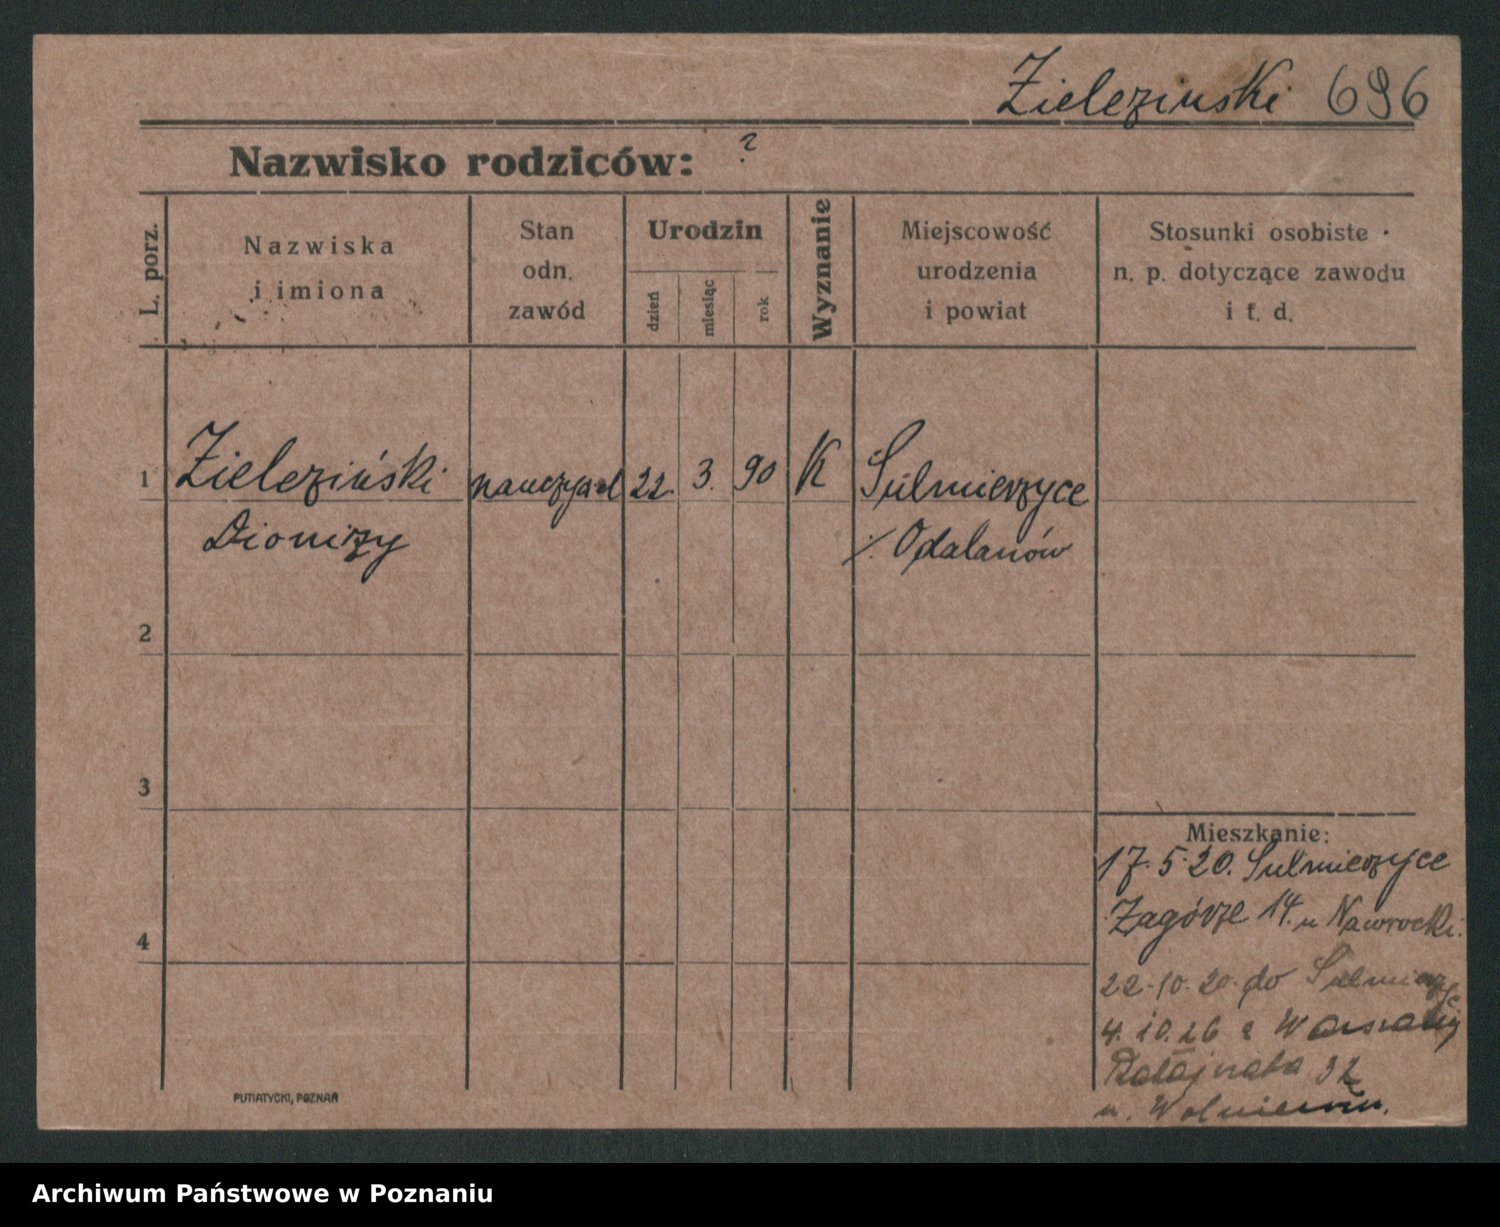 Zielezinski 696
Nazwisko rodziców: ?
L. porz.
Nazwiska
i imiona
Stan
odn.
zawód
Urodzin
dzień
miesiąc
rok
Wyznanie
Miejscowość
urodzenia
i powiat
Stosunki osobiste
n. p. dotyczące zawodu
i t. d.
1 Zieleziński nauczyciel 22. 3. 90 K Sulmierzyce
Dionizy /. Odalanów
2
3
4
Mieszkanie:
17.5.20. Sulmierzyce
Zagórze 14. u Nawrocki.
22.10.20. do Sulmierzyc
4.10.26 z Warszawy
Ratajczaka 32
u.
PUTIATYCKI, POZNAŃ
Archiwum Państwowe w Poznaniu